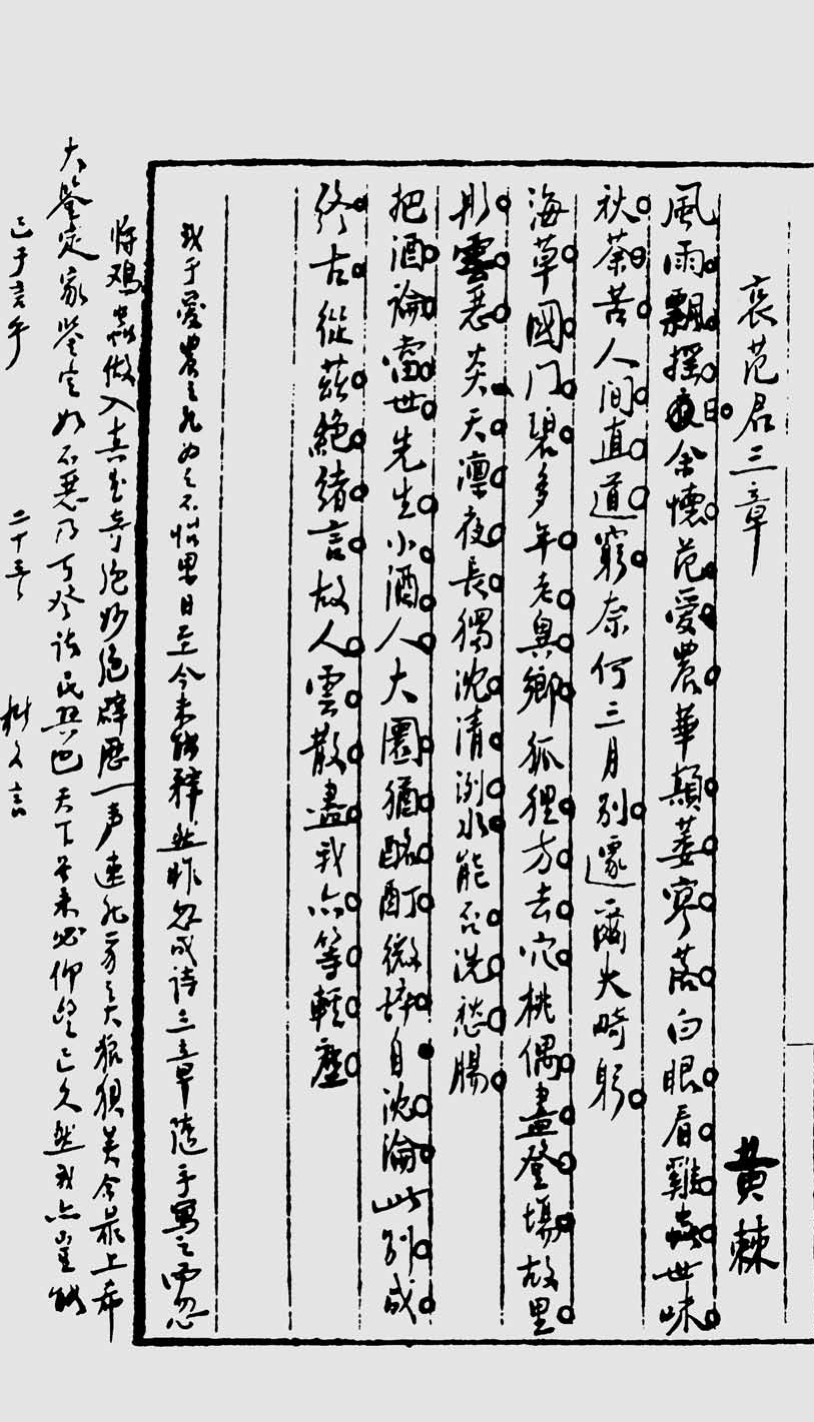 哀范君三章 黄棘
風雨飄摇日余懷范愛農華顛萎寥落白眼看雞蟲世味
秋荼苦人间直道窮奈何三月别遽爾失畸躬
海草國门碧多年老異鄉狐狸方去穴桃偶盡登場故里
彤雲惡炎天凛夜長獨沈清洌水能否洗愁腸
把酒論當世先生小酒人大圜猶酩酊微醉自沈淪此别成
终古從兹絶緒言故人雲散盡我亦等輕塵
我于愛農之死为之不怡累日至今未能釋然昨忽成诗三章隨手寫之而忽
将鸡蟲做入真是奇绝妙绝辟历一声速死豸之大狼狈矣今录上希
大鉴定家鉴定如不恶乃可登诸民兴也天下虽未必仰望已久然我亦岂能
已于言乎 二十三日 树又言